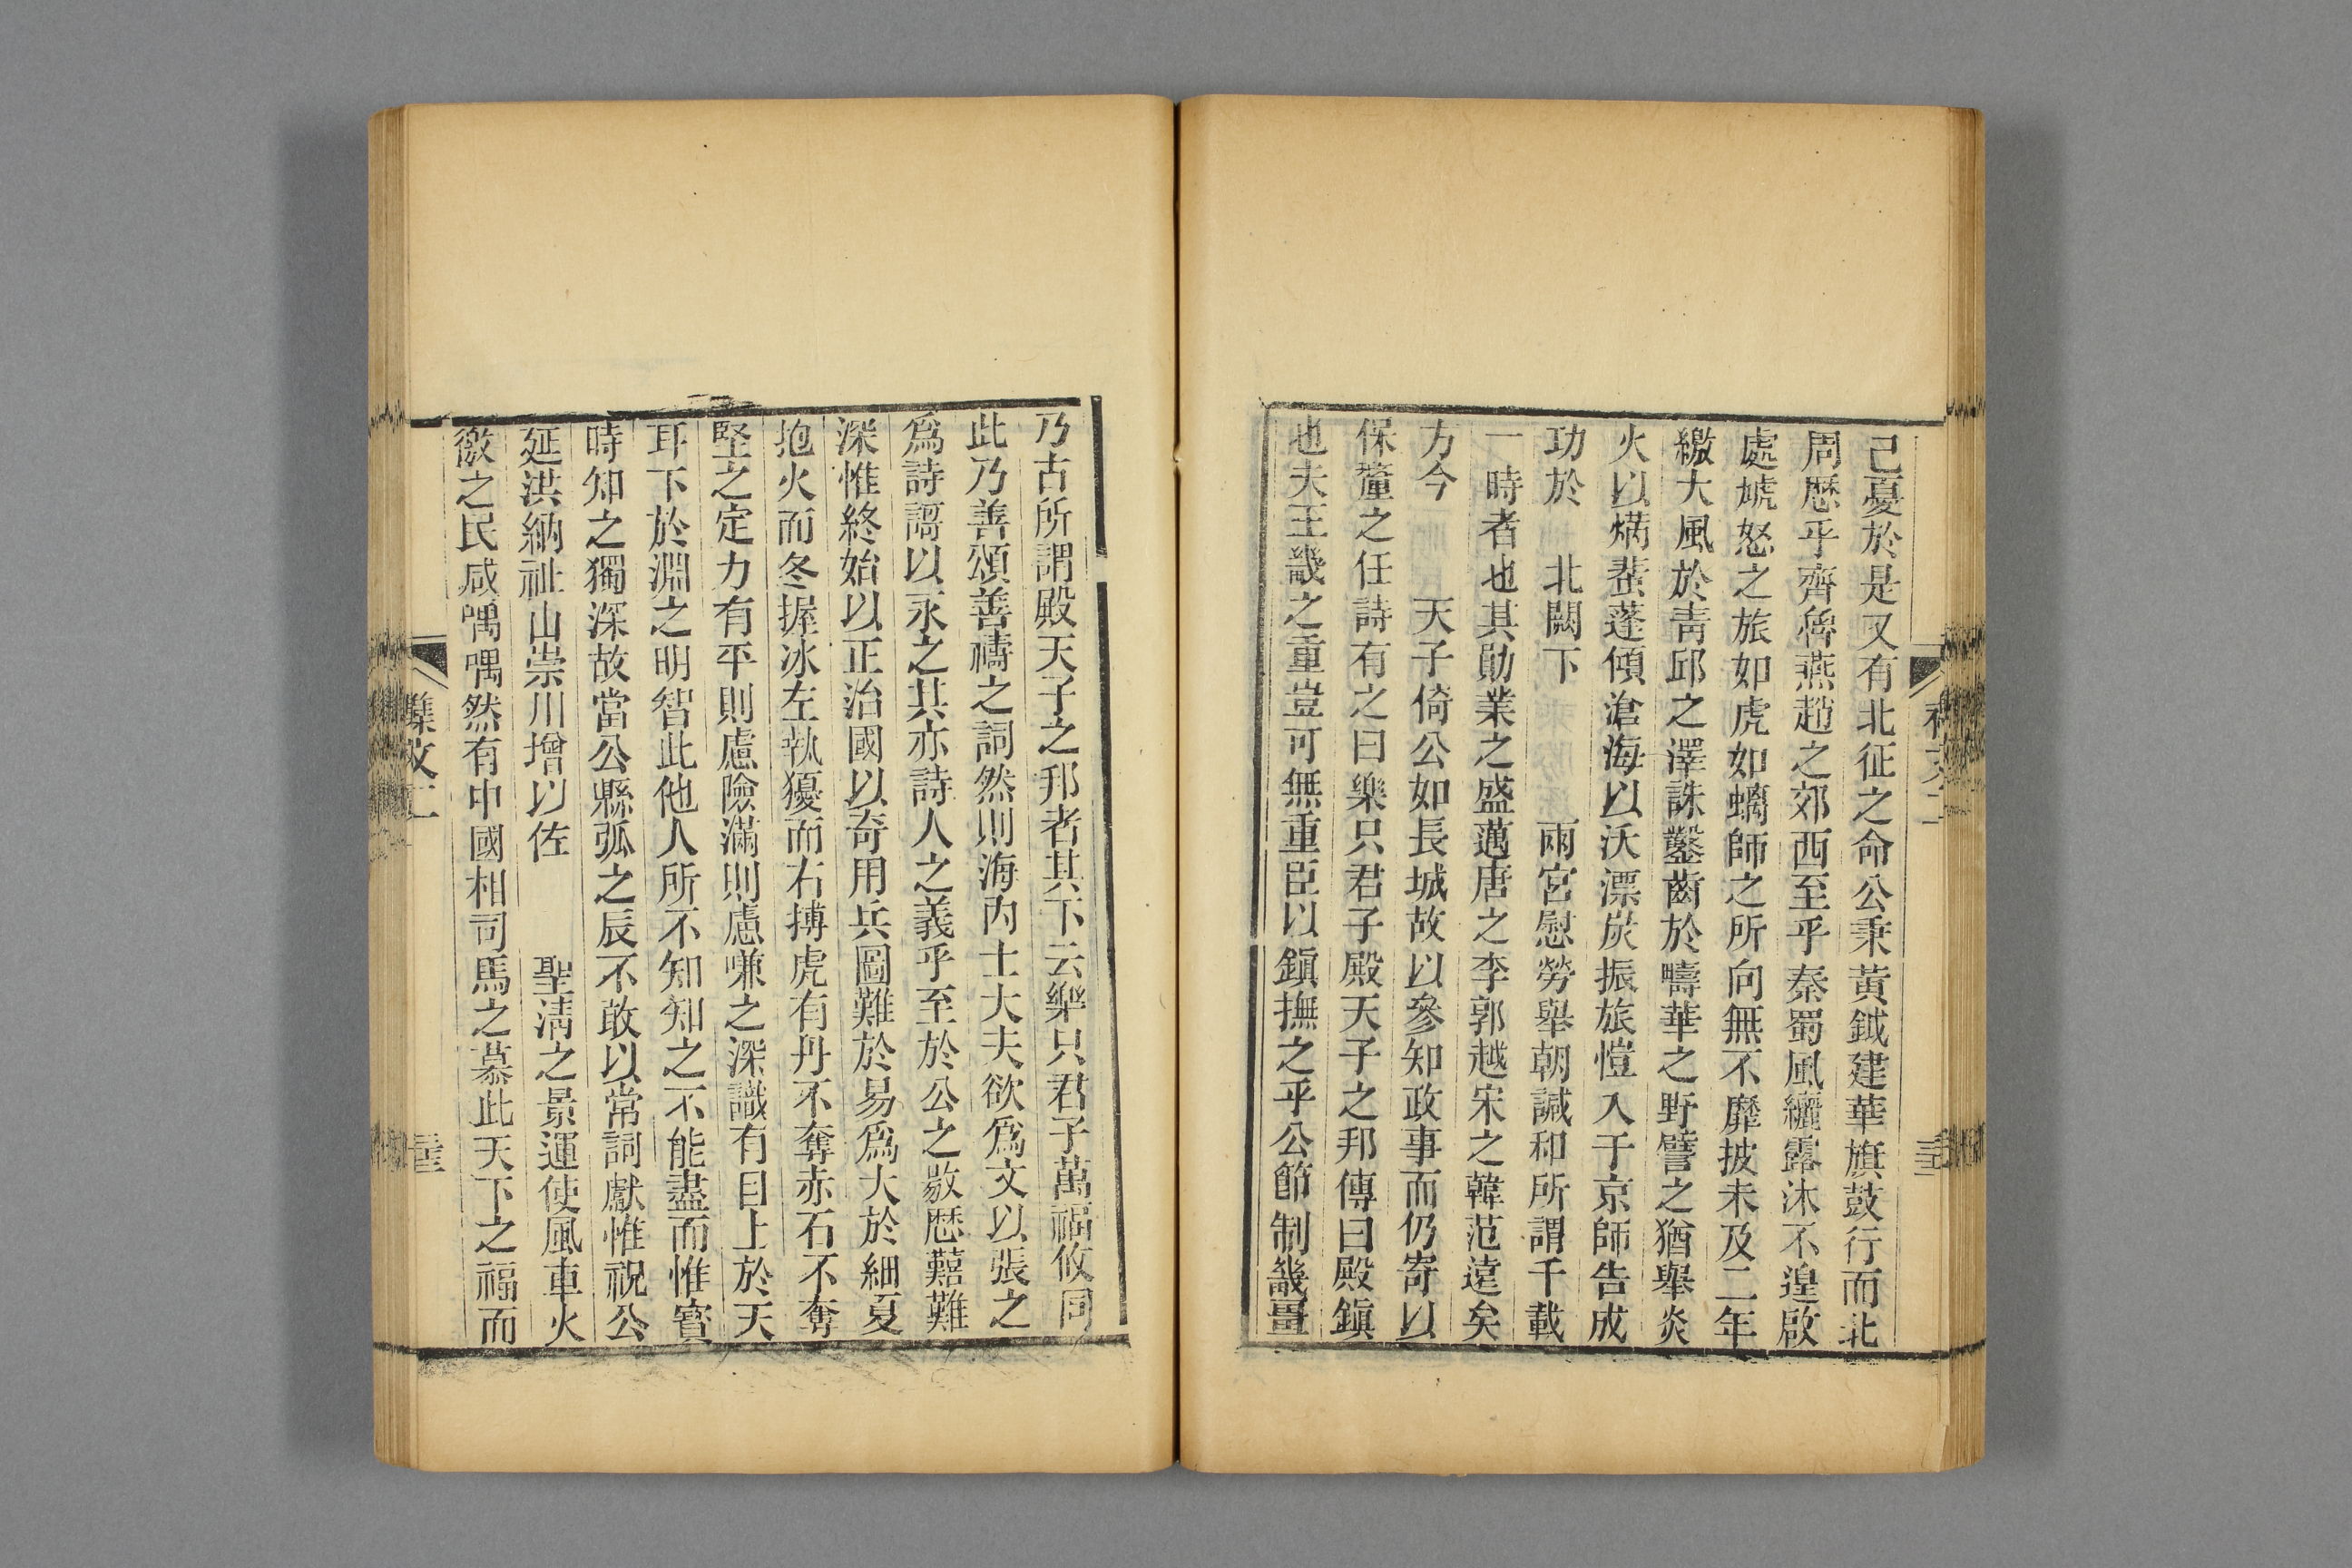 己憂於是又有北征之命公秉黃鉞建華旗鼓行而北
周歷乎齊魯燕趙之郊西至乎秦蜀風纚露沐不遑啟
處虓怒之旅如虎如螭師之所向無不靡披未及二年
繳大風於青邱之澤誅鑿齒於疇華之野譬之猶舉炎
火以爇蓬傾滄海以沃漂炭振旅愷入于京師告成
功於 北闕下 兩宮慰勞舉朝諴和所謂千載
一時者也其勛業之盛邁唐之李郭越宋之韓范遠矣
方今 天子倚公如長城故以參知政事而仍寄以
保釐之任詩有之曰樂只君子殿天子之邦傳曰殿鎮
也夫王畿之重豈可無重臣以鎮撫之乎公節制畿畺
乃古所謂殿天子之邦者其下云樂只君子萬福攸同
此乃善頌善禱之詞然則海內士大夫欲爲文以張之
爲詩謌以永之其亦詩人之義乎至於公之敭歷囏難
深惟終始以正治國以奇用兵圖難於易爲大於細夏
抱火而冬握冰左執獶而右搏虎有丹不奪赤石不奪
堅之定力有平則慮險滿則慮嗛之深識有目上於天
耳下於淵之明智此他人所不知知之不能盡而惟寳
時知之獨深故當公縣弧之辰不敢以常詞獻惟祝公
延洪納祉山崇川增以佐 聖淸之景運使風車火
徼之民咸喁喁然有中國相司馬之慕此天下之福而